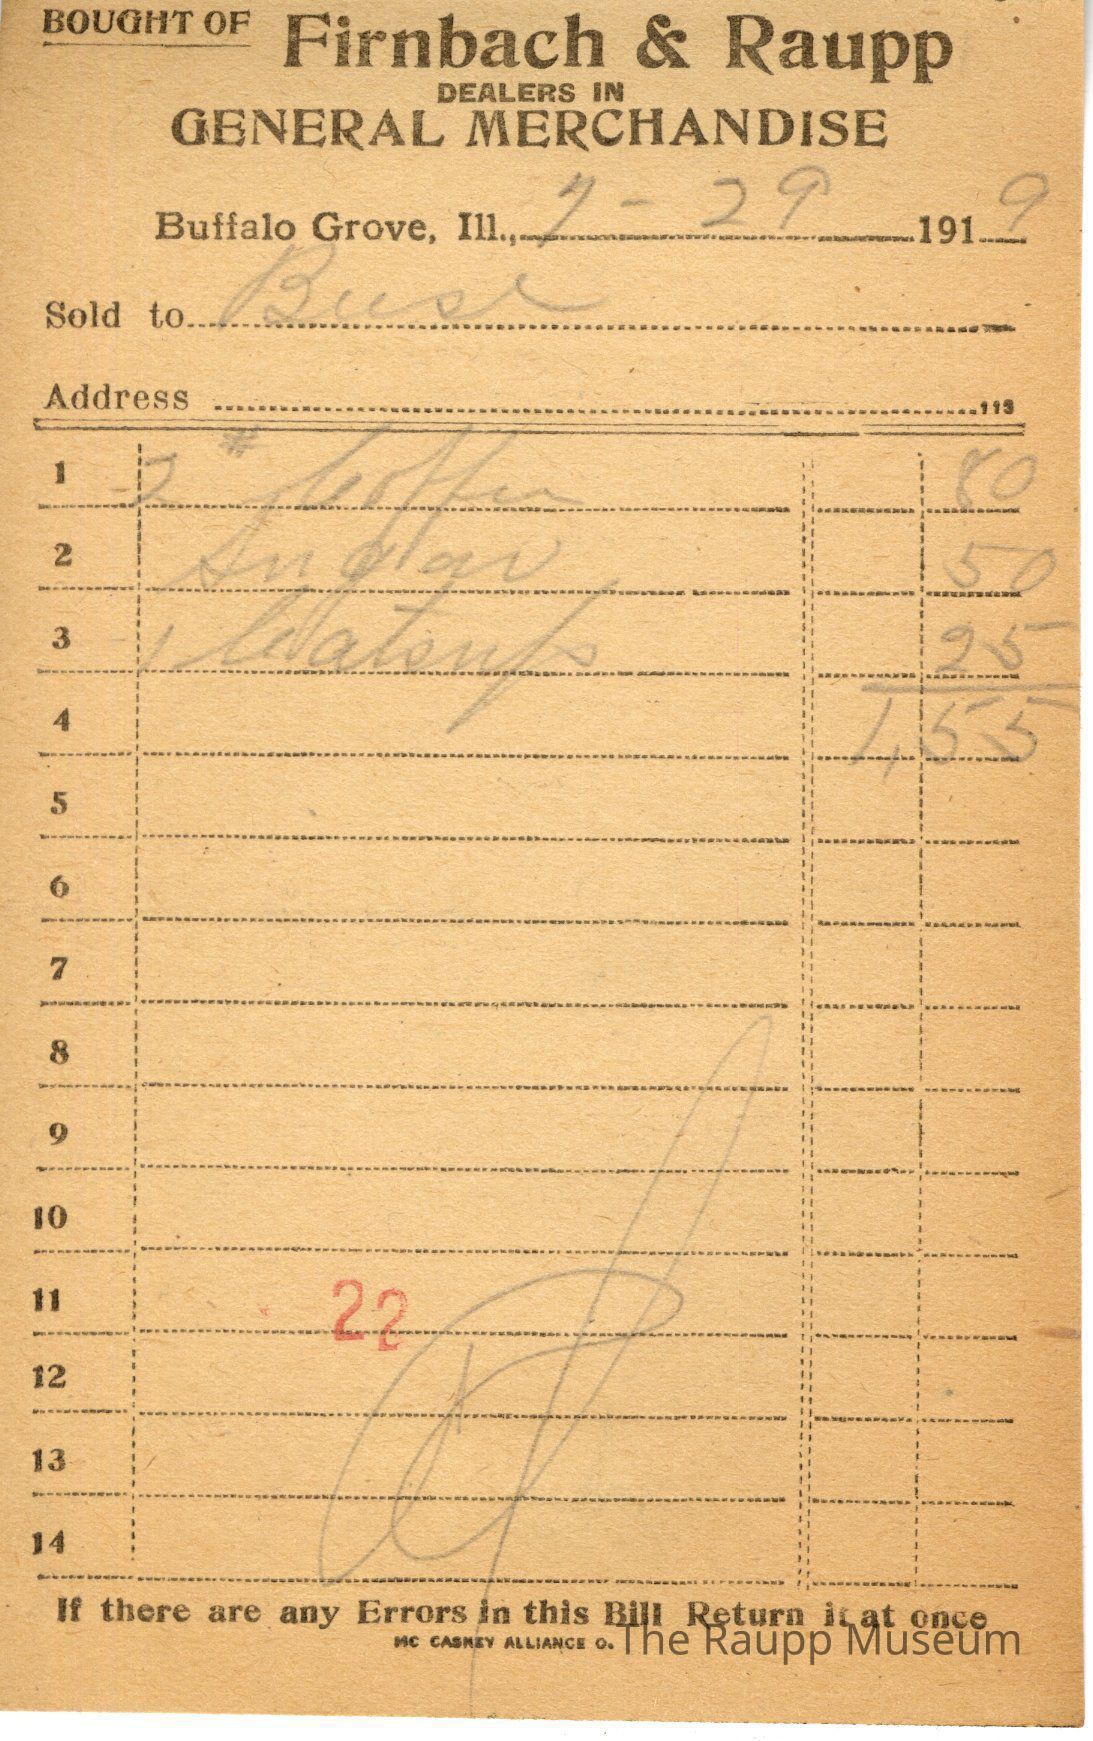 BOUGHT OF Firnbach & Raupp
DEALERS IN
GENERAL MERCHANDISE
Buffalo Grove, Ill., 7-29 1919
Sold to Buse
Address 113
1 2 # Coffee 80
2 50
3 1 Catsup 25
4 1,55
5
6
7
8
9
10
11 22
12
13
14
If there are any Errors in this Bill Return it at once
MC CASKEY ALLIANCE O.
The Raupp Museum